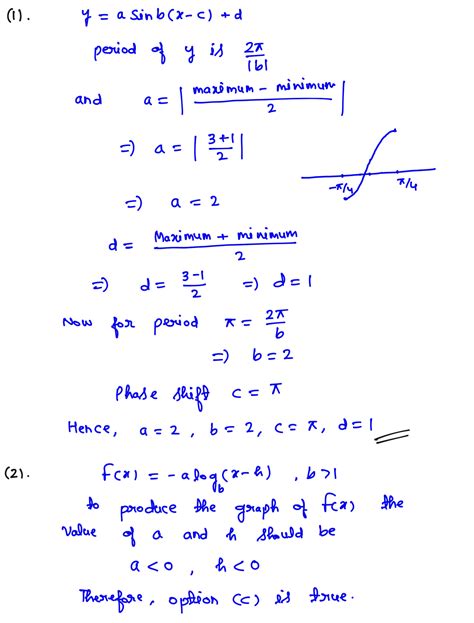 (1). y = a sin b(x-c) + d
period of y is 2π/|b|
and a = | maximum - minimum / 2 |
⇒ a = | 3+1 / 2 |
-π/4 π/4
⇒ a = 2
d = Maximum + minimum / 2
⇒ d = 3-1 / 2 ⇒ d = 1
Now for period π = 2π/b
⇒ b = 2
phase shift c = π
Hence, a = 2, b = 2, c = π, d = 1
(2). f(x) = -a log_b (x-h), b>1
to produce the graph of f(x) the
value of a and h should be
a<0, h<0
Therefore, option (c) is true.